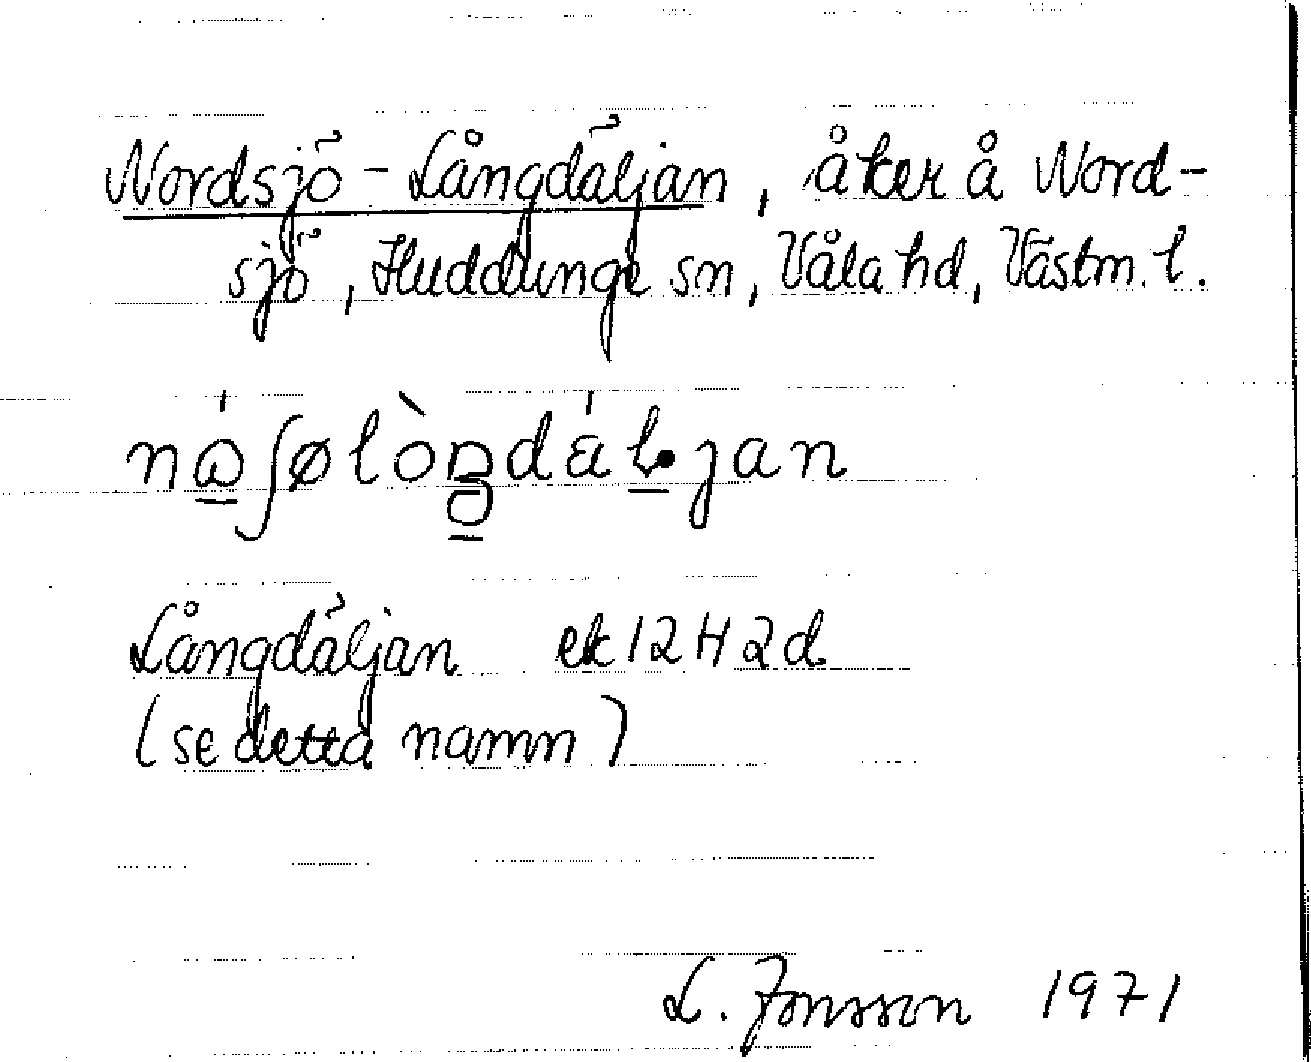 Nordsjö-Långdäljan, åker å Nord-
sjö, Huddunge sn, Våla hd, Västm. l.
Långdäljan ek 12 H 2d
(se detta namn)
L. Jonsson 1971